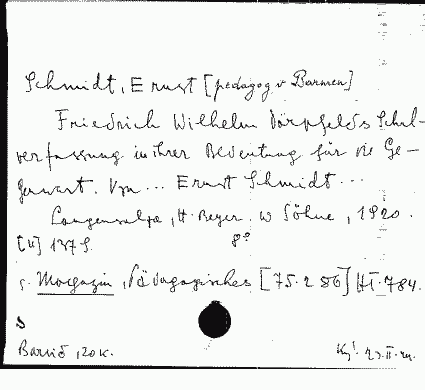 Schmidt, Ernst [pedagog v Barmen]
Friedrich Wilhelm Dörpfelds Schul-
verfassung in ihrer Bedeutung für die Ge-
genwart. Von ... Ernst Schmidt ...
Langensalza, H. Beyer u Söhne, 1920.
[4] 137 S. 8°
s. Magazin, Pädagogisches [75. 286] H I. 784.